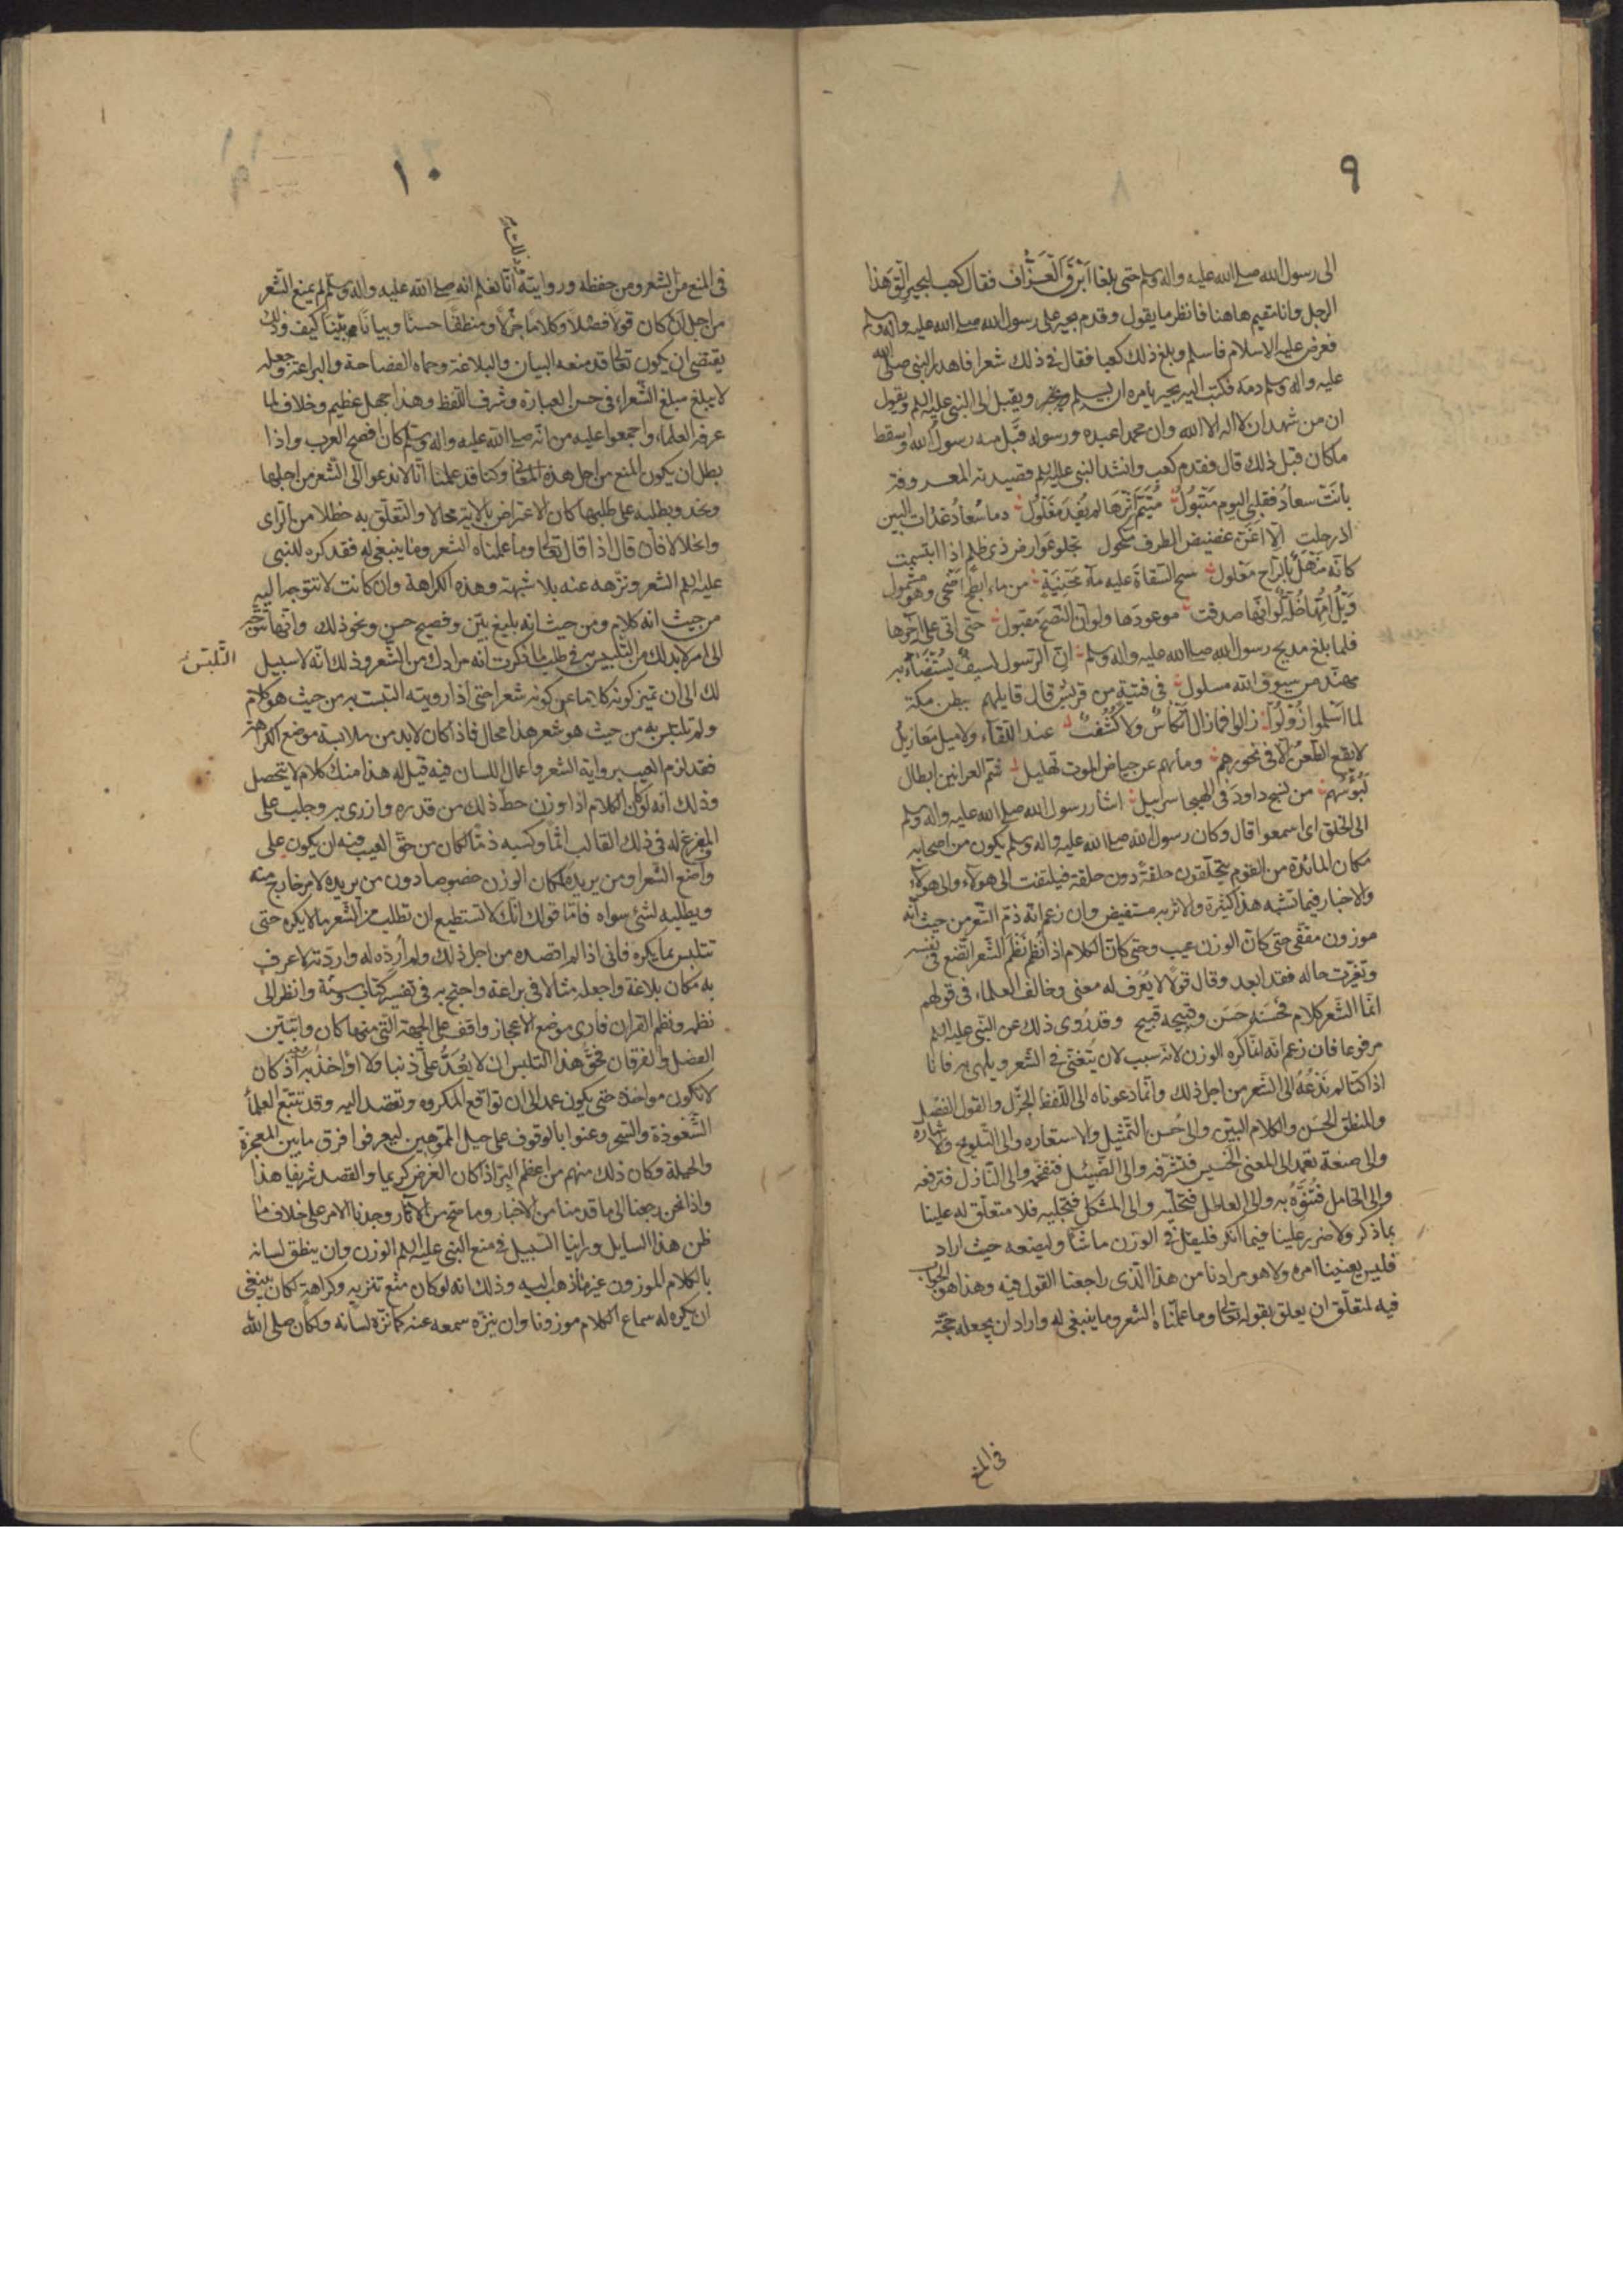 ٩
الى رسول الله صلى الله عليه واله وسلم حتى بلغا اَبْرَقَ العَزَّاف فقال كعب لبجير اِلْقَ هذا
الرجل وانا مقيم هاهنا فانظر ما يقول وقدم بجير على رسول الله صلى الله عليه واله وسلم
فعرض عليه الاسلام فاسلم وبلغ ذلك كعبا فقال فى ذلك شعرا فاهدر النبى صلى الله
عليه واله وسلم دمه فكتب اليه بجير يامره ان يسلم ويقبل الى النبى عليه السلم ويقول
ان من شهد ان لا اله الا الله وان محمدا عبده ورسوله قَبِل منه رسول الله واسقط
ما كان قبل ذلك قال فقدم كعب وانشد النبى عليه السلم قصيدته المعروفة
بانَتْ سعادُ فقلبى اليوم مَتْبُولُ مُتَيَّمٌ اِثْرَها لم يُفْدَ مَغْلُولُ وما سُعادُ غداةَ البين
اذ رحلت اِلّا اَغَنّ غضيض الطرف مكحول تجلو عوارض ذى ظلم اذا ابتسمت
كانّه مَنْهَلٌ بالرّاح مَعْلول سح السُّقاة عليه ماء مَحْنِيَةٍ من ماء ابطح اضحى وهو مشمول
وَيْلُ امِّها خُلّةً لو انّها صدقت موعودها ولو ان النّصح مقبول حتى اتى على اخرها
فلما بلغ مديح رسول الله صلى الله عليه واله وسلم انّ الرّسول لسيفٌ يُسْتَضَاءُ به
مهنّد من سيوف الله مسلول فى فتية من قريش قال قايلهم ببطن مكة
لما اسلموا زُولُوا زالوا فما زال اَنْكاسٌ ولا كُشُفٌ عند اللّقاء ولا ميل معازيل
لا يقع الطّعنُ الّا فى نحورهم وما بهم عن حياض الموت تهليل شُمّ العرانين ابطال
لَبُوسُهم من نسج داود فى الهيجا سرابيل اشار رسول الله صلى الله عليه واله وسلم
الى الخلق اى اسمعوا قال وكان رسول الله صلى الله عليه واله وسلم يكون من اصحابه
مكان المائدة من القوم يتحلّقون حلقةً دون حلقة فيلتفت الى هولاء والى هولاء
والاخبار فيما يشبه هذا كثيرة والاثر به مستفيض وان زعم انّه ذمّ الشّعر من حيث انّه
موزون مقفّى حتى كانّ الوزن عيب وحتى كانّ الكلام اذا نُظِمَ نَظْمَ الشّعر اتّضع فى نفسه
وتغيّرت حاله فقد ابعد وقال قولا لا يُعْرَف له معنى وخالف العلماء فى قولهم
انّما الشّعر كلام فَحَسَنه حَسَن وقبيحه قبيح وقد رُوى ذلك عن النّبى عليه السلم
مرفوعا فان زعم انّه انما كره الوزن لانّه سبب لان يُتَغنّى فى الشّعر ويلهى به فانا
اذا كنّا لم نَدْعُهُ الى الشّعر من اجل ذلك وانّما دعوناه الى اللّفظ الجَزْل والقول الفَصْل
والمنطق الحَسَن والكلام البيّن والى حُسن التّمثيل والاستعاره والى التّلويح والاشارة
والى صنعة تعمد الى المعنى الخسيس فتُشرّفه والى الضّئيل فتفخّمه والى النّازل فترفعه
والى الخامل فَتُنَوِّهُ به والى العاطل فتحلّيه والى المشكل فتجلّيه فلا متعلّق له علينا
بما ذكر ولا ضرر علينا فيما انكر فليقل فى الوزن ما شآء وليضعه حيث اراد
فليس يعنينا امره ولا هو مرادنا من هذا الّذى راجعنا القول فيه وهذا هو الجواب
فيه لمتعلّق ان يعلق بقوله تعالى وما علّمناه الشعر وما ينبغى له واراد ان يجعله حجّة
فى المنع
١٠
فى المنع من الشعر ومن حفظه وروايته انّا نعلم انه صلى الله عليه واله وسلّم لم يمنع الشّعر
من اجل ان كان قولا فصْلا وكلاما جزلا ومنطقًا حسنًا وبيانًا بيّنًا كيف وذلك
يقتضى ان يكون تعالى قد منعه البيان والبلاغة وحماه الفصاحة والبراعة وجعله
لا يبلغ مبلغ الشّعراء فى حسن العبارة وشرف اللّفظ وهذا جهل عظيم وخلاف لما
عرفه العلماء واجمعوا عليه من انّه صلى الله عليه واله وسلم كان افصح العرب واذا
بطل ان يكون المنع من اجل هذه المعانى وكنا قد علمنا انّا لا ندعو الى الشّعر من اجلها
ونحدو بطلبه على طلبها كان الاعتراض بالاية محالا والتعلّق به خطلا من الرّاى
وانحلالا فان قال اذا قال تعالى وما علمناه الشعر وما ينبغى له فقد كره للنبى
عليه السلم الشعر ونزّهه عنه بلا شبهة وهذه الكراهة وان كانت لا تتوجّه اليه
من حيث انه كلام ومن حيث انه بليغ بيّن وفصيح حسن ونحو ذلك وانّها تتوجّه
الى امر لا بد لك من التلبس به فى طلب ما ذكرت انه مرادك من الشّعر وذلك انّه لا سبيل
التّلبّس
لك الى ان تميز كونه كلاما عن كونه شعرا حتى اذا رويته التبست به من حيث هو كلام
ولم تلتبس به من حيث هو شعر هذا محال فاذا كان لا بد من ملابسة موضع الكراهة
فقد لزم العيب برواية الشعر واعمال اللسان فيه قيل له هذا منك كلام لا يتحصل
وذلك انه لو كان الكلام اذا وزن حطّ ذلك من قدره وازرى به وجلب على
المفرغ له فى ذلك القالب اثما وكسبه ذمّا لكان من حقّ العيب فيه ان يكون على
واضع الشعر او من يريده لمكان الوزن خصوصا دون من يريده لامر خارج منه
ويطلبه لشئ سواه فامّا قولك انّك لا تستطيع ان تطلب من الشّعر ما لا يكره حتى
تتلبس بما يكره فانى اذا لم اقصده من اجل ذلك ولم اُرِدْه له واردته لاعرف
به مكان بلاغة واجعله مثالا فى براعة واحتج به فى تفسير كتاب وسنة وانظر الى
نظمه ونظم القران فارى موضع الاعجاز واقف على الجهة التى منها كان واتبيّن
الفضل والفرقان فحقّ هذا التلبس ان لا يُعَدُّ علىّ ذنبا ولا اُواخذ به اذ كان
لا تكون مواخذة حتى يكون عمد الى ان تواقع المكروه وتقصد اليه وقد تتبّع العلماء
الشّعوذة والسّحر وعنوا بالوقوف على حيل المموّهين ليعرفوا فرق ما بين المعجزة
والحيلة وكان ذلك منهم من اعظم البرّ اذ كان الغرض كريما والقصد شريفا هذا
واذا نحن رجعنا الى ما قدمنا من الاخبار وما صحّ من الاثار وجدنا الامر على خلاف ما
ظن هذا السايل وراينا السبيل فى منع النبى عليه السلم الوزن وان ينطق لسانه
بالكلام الموزون غير ما ذهب اليه وذلك انه لو كان منْع تنزيه وكراهة لكان ينبغى
ان يكره له سماع الكلام موزونا وان ينزّه سمعه عنه كما نزّه لسانه ولكان صلى الله